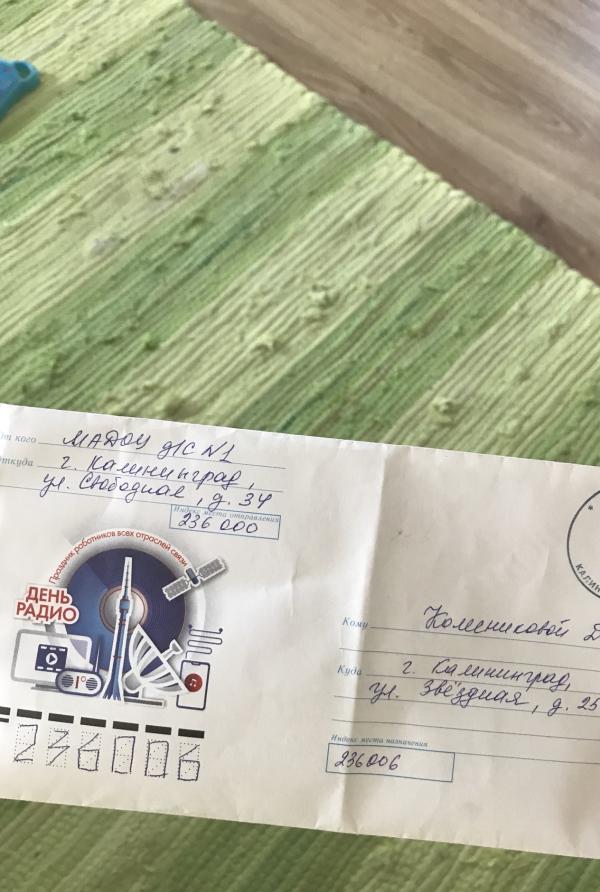 От кого МАДОУ д/с №1
Откуда г. Калининград,
ул. Свободная, д. 34
Индекс места отправления
236 000
Праздник работников всех отраслей связи
ДЕНЬ
РАДИО
236006
КАЛИН
Кому Колесниковой
Куда г. Калининград,
ул. Звёздная, д. 25
Индекс места назначения
236006